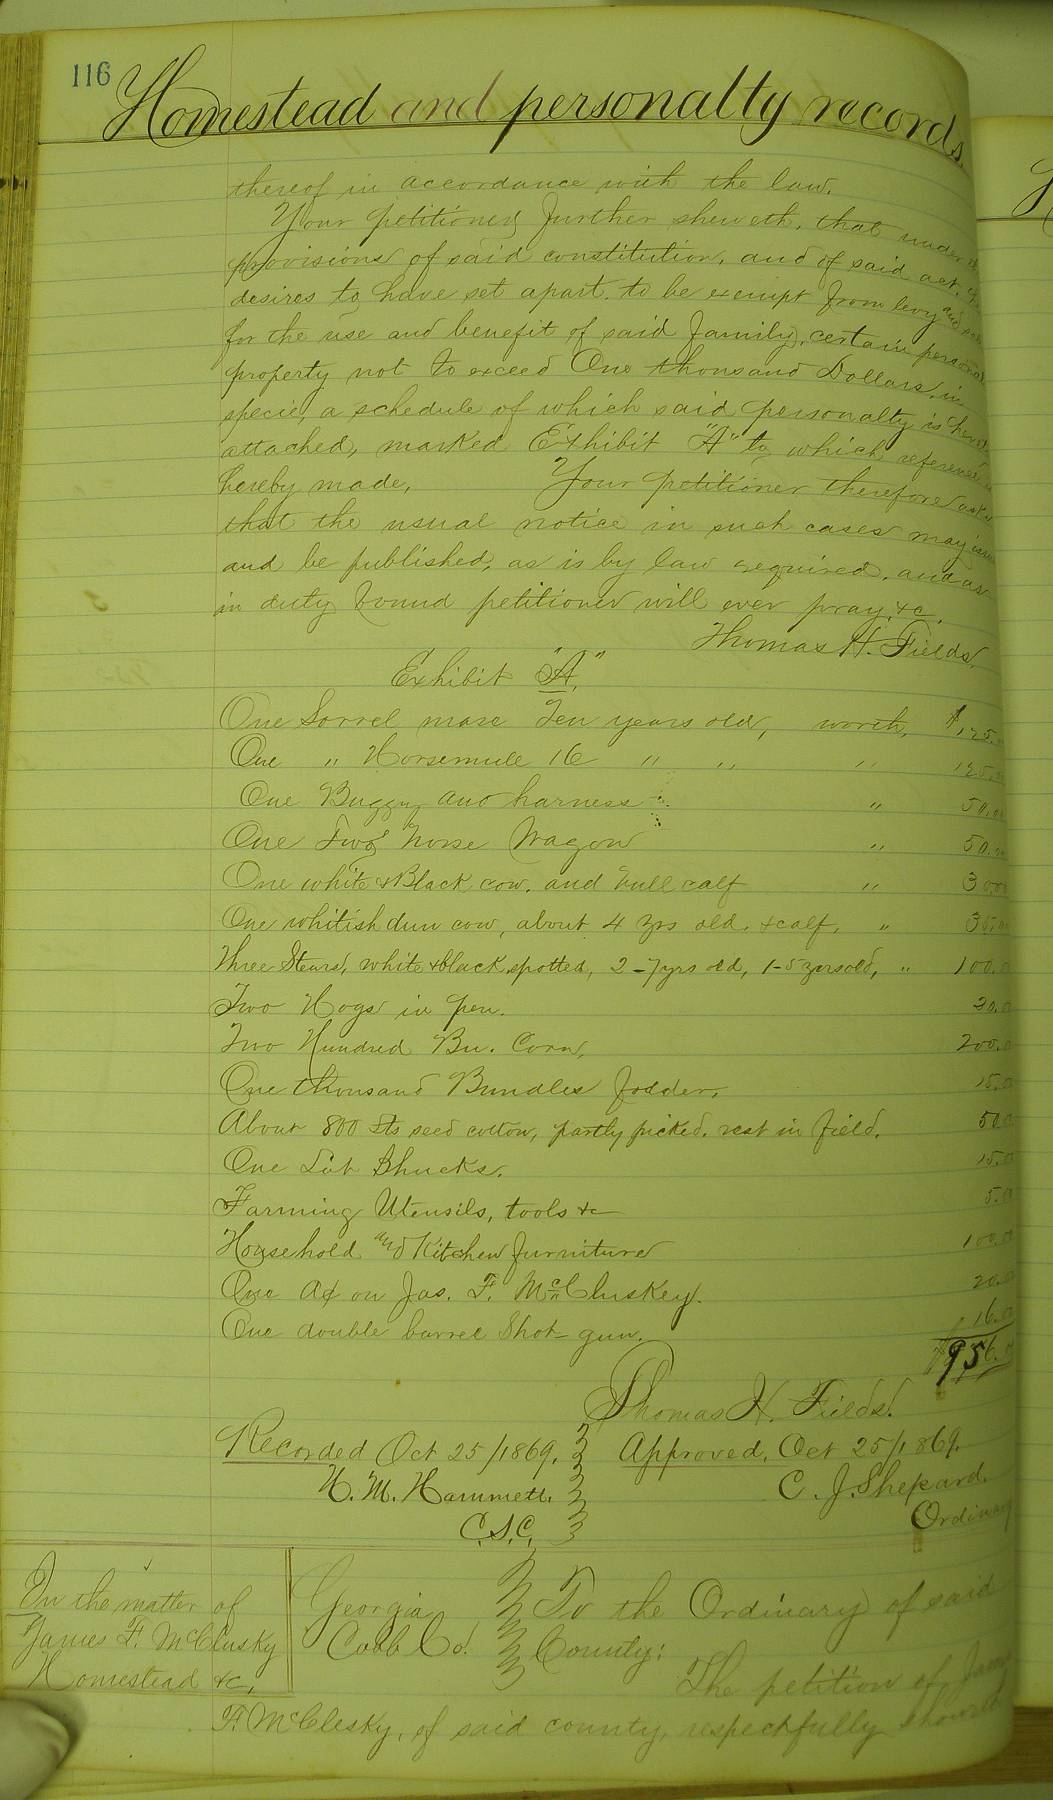 116
Homestead and personalty records.
thereof in accordance with the law.
Your petitioner further sheweth, that under
provisions of said constitution, and of said act,
desires to have set apart, to be exempt from levy and
for the use and benefit of said family, certain personal
property not to exceed One thousand Dollars, in
specie, a schedule of which said personalty is
attached, marked Exhibit "A" to which reference
hereby made. Your petitioner therefore asks
that the usual notice in such cases may issue
and be published, as is by law required, and as
in duty bound petitioner will ever pray, &c.
Thomas H. Fields.
Exhibit "A."
One Sorrel mare Ten years old, worth, $125.
One " Horsemule 16 " " " 125.
One Buggy and harness " 50.00
One Two Horse Wagon " 50.
One white & Black cow, and bull calf " 30.00
One whitish dun cow, about 4 yrs old, & calf, "
Three Steers, white & black spotted, 2-7 yrs old, 1-5 years old, " 100.
Two Hogs in pen.
Two Hundred Bu. Corn, 200.
One thousand Bundles fodder, 15.
About 800 lbs seed cotton, partly picked, rest in field. 50.
One Lot Shucks. 15.
Farming Utensils, tools &c 5.
Household and Kitchen furniture 100.
One a/c on Jas. F. McCluskey. 20.
One double barrel Shot-gun. 16.
$956.
Thomas H. Fields.
Recorded Oct 25/1869. Approved, Oct 25/1869.
H. M. Hammett. C. J. Shepard.
C.S.C. Ordinary
In the matter of
James F. McClusky
Homestead &c.
Georgia
Cobb Co.
To the Ordinary of said
County:
The petition of James
F. McClesky, of said county, respectfully